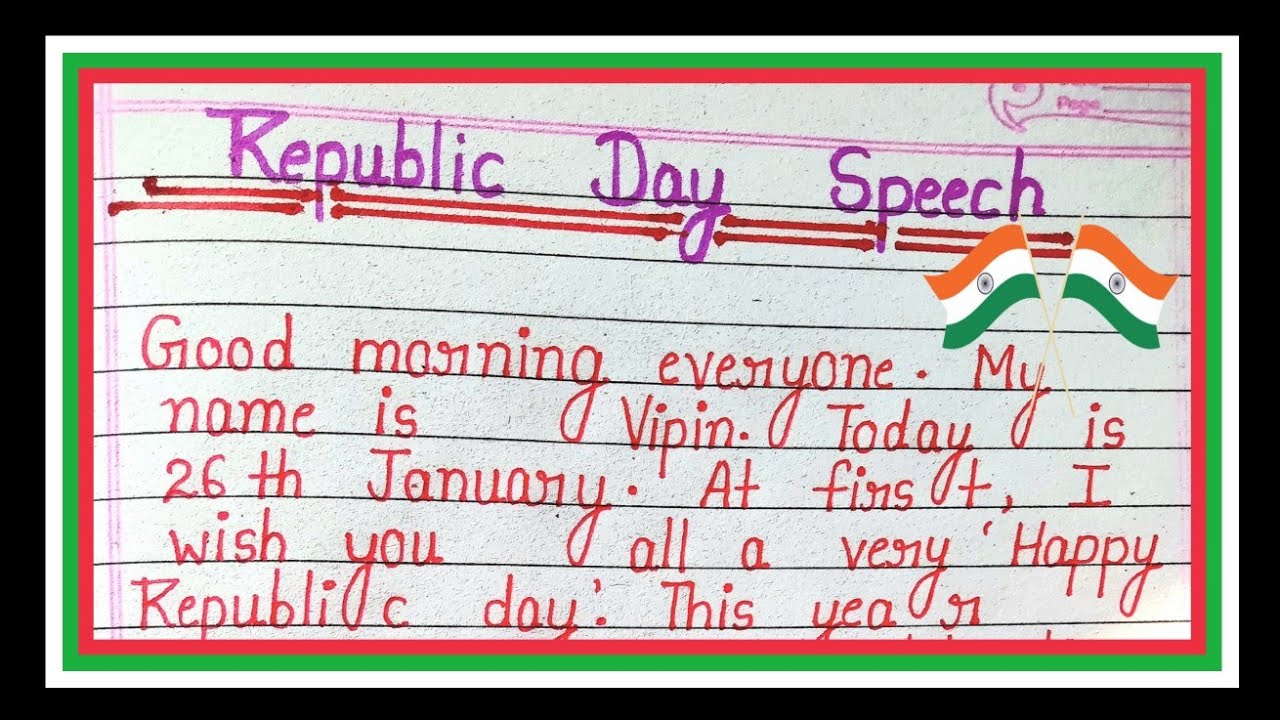 Page
Republic Day Speech
Good morning everyone. My
name is Vipin. Today is
26th January. At first, I
wish you all a very 'Happy
Republic day'. This year